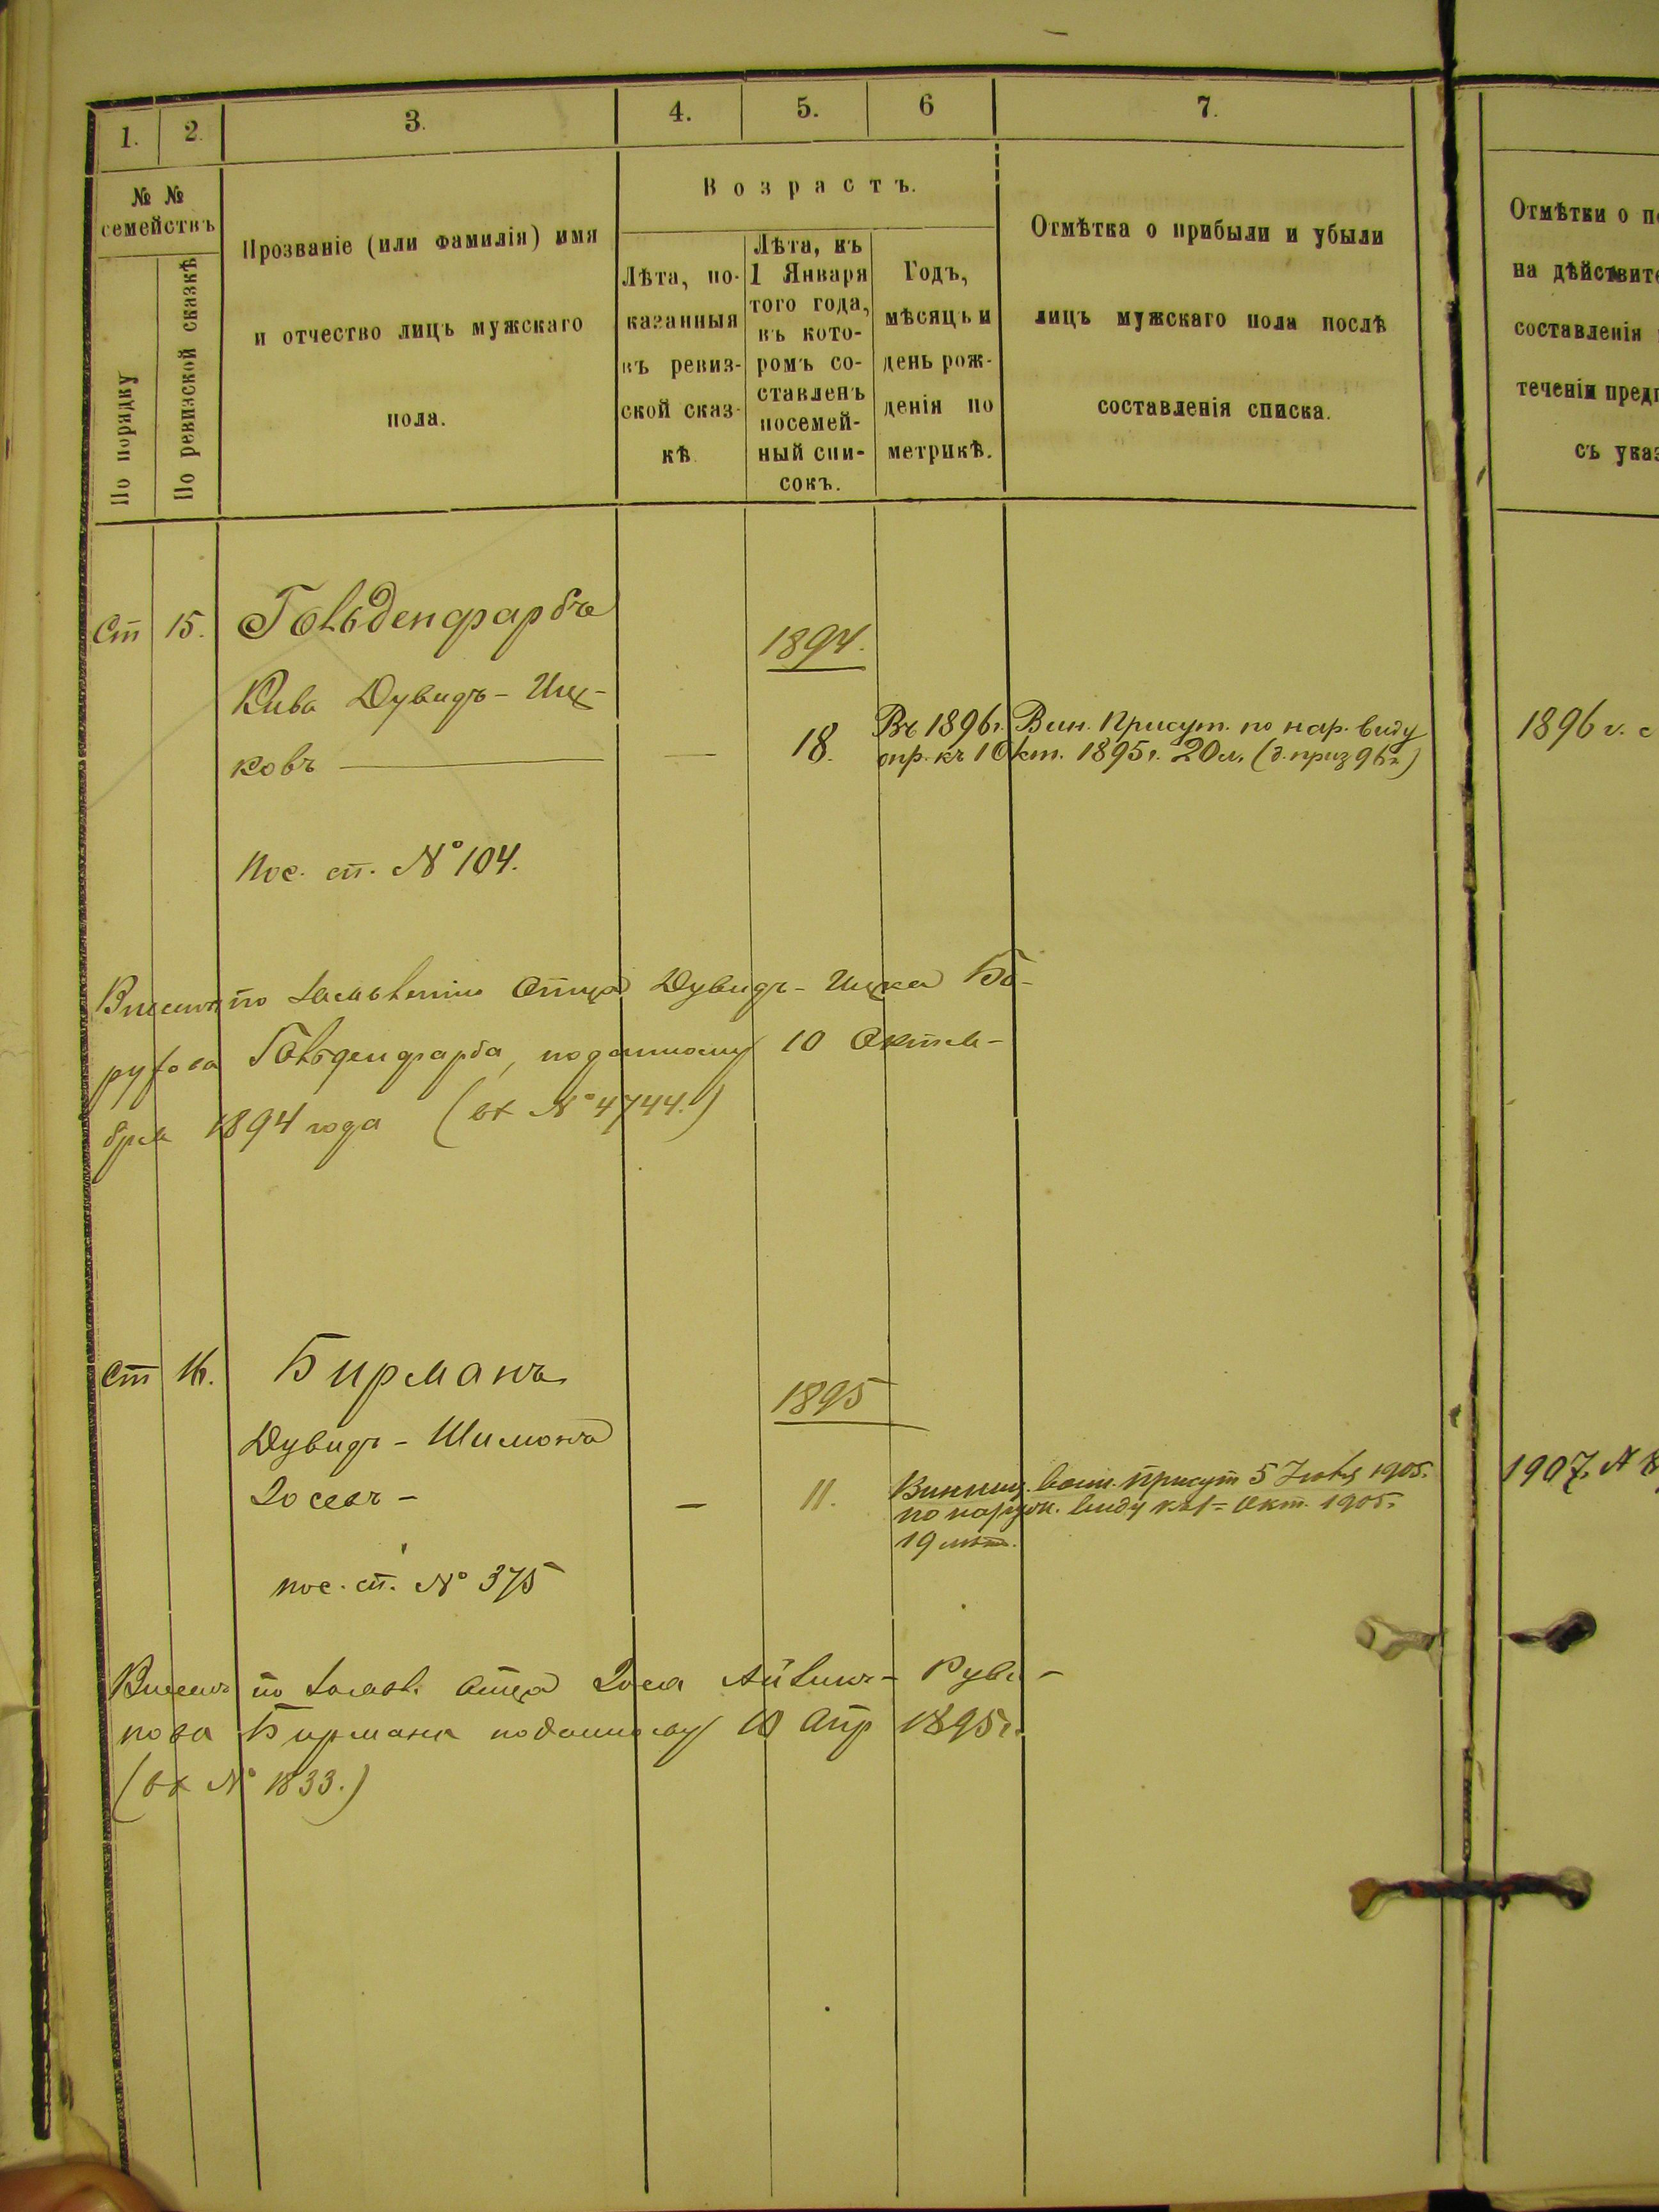 1. 2. 3. 4. 5. 6 7.
№ № семействъ
По порядку
По ревизской сказкѣ
Прозваніе (или фамилія) имя
и отчество лицъ мужскаго
пола.
Возрастъ.
Лѣта, по-
казанныя
въ ревиз-
ской сказ-
кѣ.
Лѣта, къ
1 Января
того года,
въ кото-
ромъ со-
ставленъ
посемей-
ный спи-
сокъ.
Годъ,
мѣсяцъ и
день рож-
денія по
метрикѣ.
Отмѣтка о прибыли и убыли
лицъ мужскаго пола послѣ
составленія списка.
Отмѣтки о п
на дѣйствите
составленія
теченіи пред
съ указ
Ст 15. Гольденфарбъ
1894.
Кива Дувидъ-Иц-
ковъ — — 18. Въ 1896 г. Вин. Присут. по нар. виду
опр. къ 1 Окт. 1895 г. 20 л. (д. приз 96 г)
1896 г. с
Пос. сп. № 104.
Внесенъ по заявленію отца Дувидъ-Ицка Бо-
рухова Гольденфарба, поданному 10 Октя-
бря 1894 года (вх № 4744.)
Ст 16. Бирманъ
1895
Дувидъ-Шимонъ
Іосевъ - — 11. Винниц. воин. присут 5 1905.
по наружн. виду къ 1 = Окт. 1905.
19 лѣтъ.
1907.
пос. сп. № 375
Внесенъ по заявл. отца Іося Руви-
нова Бирмана поданному 10 Апр 1895 г.
(вх № 1833.)